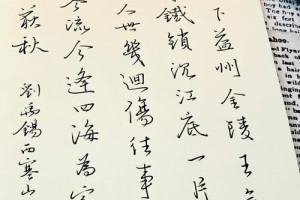 下益州金陵王
鐵鎖沉江底一片
世幾迴傷往事
流今逢四海為
荻秋 劉禹錫西塞山